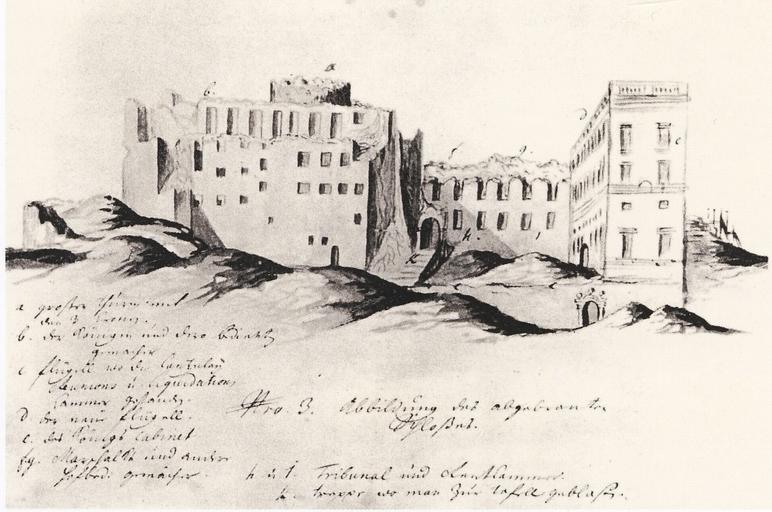 a großer thurn mit
den 3 Cronen.
b. der Königin und dero bedienten
gemächer
c flügell wo die Cantzley
Reunions u. Liquidations
Cammer gestanden.
d der neue flügell.
e. des Königs Cabinet
fg. Marschalls und andere
hofbed. gemächer.
Nro 3. Abbildung des abgebranten
Schloßes.
h u i. Tribunal und Rentkammer.
k. treppe wo man zur tafell geblasen.